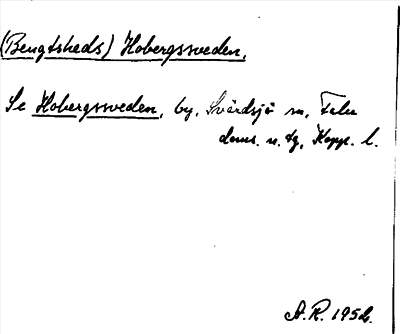 (Bengtsheds) Hobergssveden.
Se Hobergssveden, by, Svärdsjö sn, Falu
doms. n. tg, Kopp. l.
A.R. 1952.